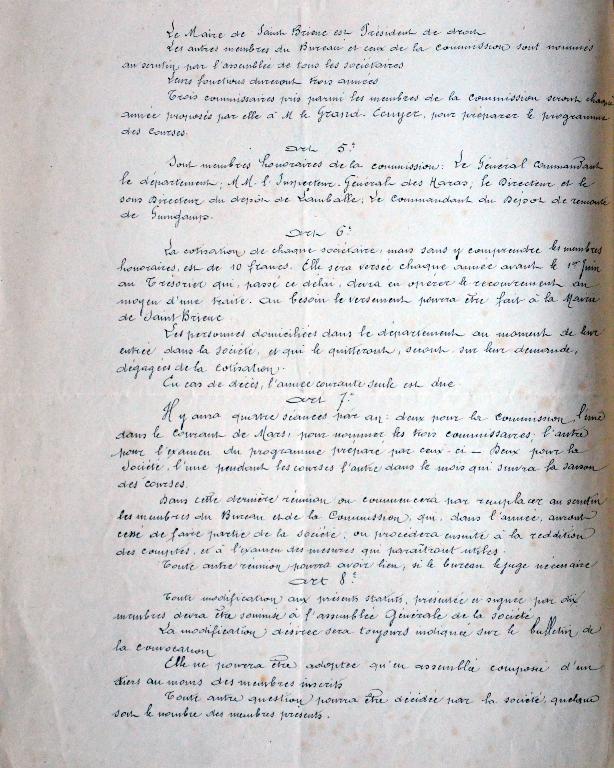 Le Maire de Saint Brieuc est Président de droit
Les autres membres du Bureau et ceux de la commission sont nommés
au scrutin par l'assemblée de tous les sociétaires
Leurs fonctions dureront trois années
Trois commissaires pris parmi les membres de la commission seront chaque
année proposés par elle à M le Grand-Ecuyer, pour préparer le programme
des courses.
Art 5e
Sont membres honoraires de la commission: Le Général Commandant
le département; M.M. l'Inspecteur Général des Haras; le Directeur et le
sous Directeur du dépôt de Lamballe; Le Commandant du Dépôt de remonte
de Guingamp.
Art 6e
La cotisation de chaque sociétaire, mais sans y comprendre les membres
honoraires, est de 10 francs. Elle sera versée chaque année avant le 1er Juin
au Trésorier qui, passé ce délai, devra en opérer le recouvrement au
moyen d'une traite. Au besoin le versement pourra être fait à la Mairie
de Saint Brieuc
Les personnes domiciliées dans le département au moment de leur
entrée dans la société, et qui le quitteront, seront, sur leur demande,
dégagées de la cotisation.
En cas de décès, l'année courante seule est due
Art 7e
Il y aura quatre séances par an: deux pour la commission, l'une
dans le courant de Mars, pour nommer les trois commissaires; l'autre
pour l'examen du programme préparé par ceux-ci — Deux pour la
Société, l'une pendant les courses l'autre dans le mois qui suivra la saison
des courses.
Dans cette dernière réunion on commencera par remplacer au scrutin
les membres du Bureau et de la Commission, qui, dans l'année, auront
cessé de faire partie de la société; on procédera ensuite à la reddition
des comptes, et à l'examen des mesures qui paraîtront utiles.
Toute autre réunion pourra avoir lieu, si le bureau le juge nécessaire
Art 8e
Toute modification aux présents statuts, présentée et signée par dix
membres devra être soumise à l'assemblée Générale de la société
La modification désirée sera toujours indiquée sur le bulletin de
la convocation
Elle ne pourra être adoptée qu'en assemblée composée d'un
tiers au moins des membres inscrits
Toute autre question pourra être décidée par la société, quelque
soit le nombre des membres présents.